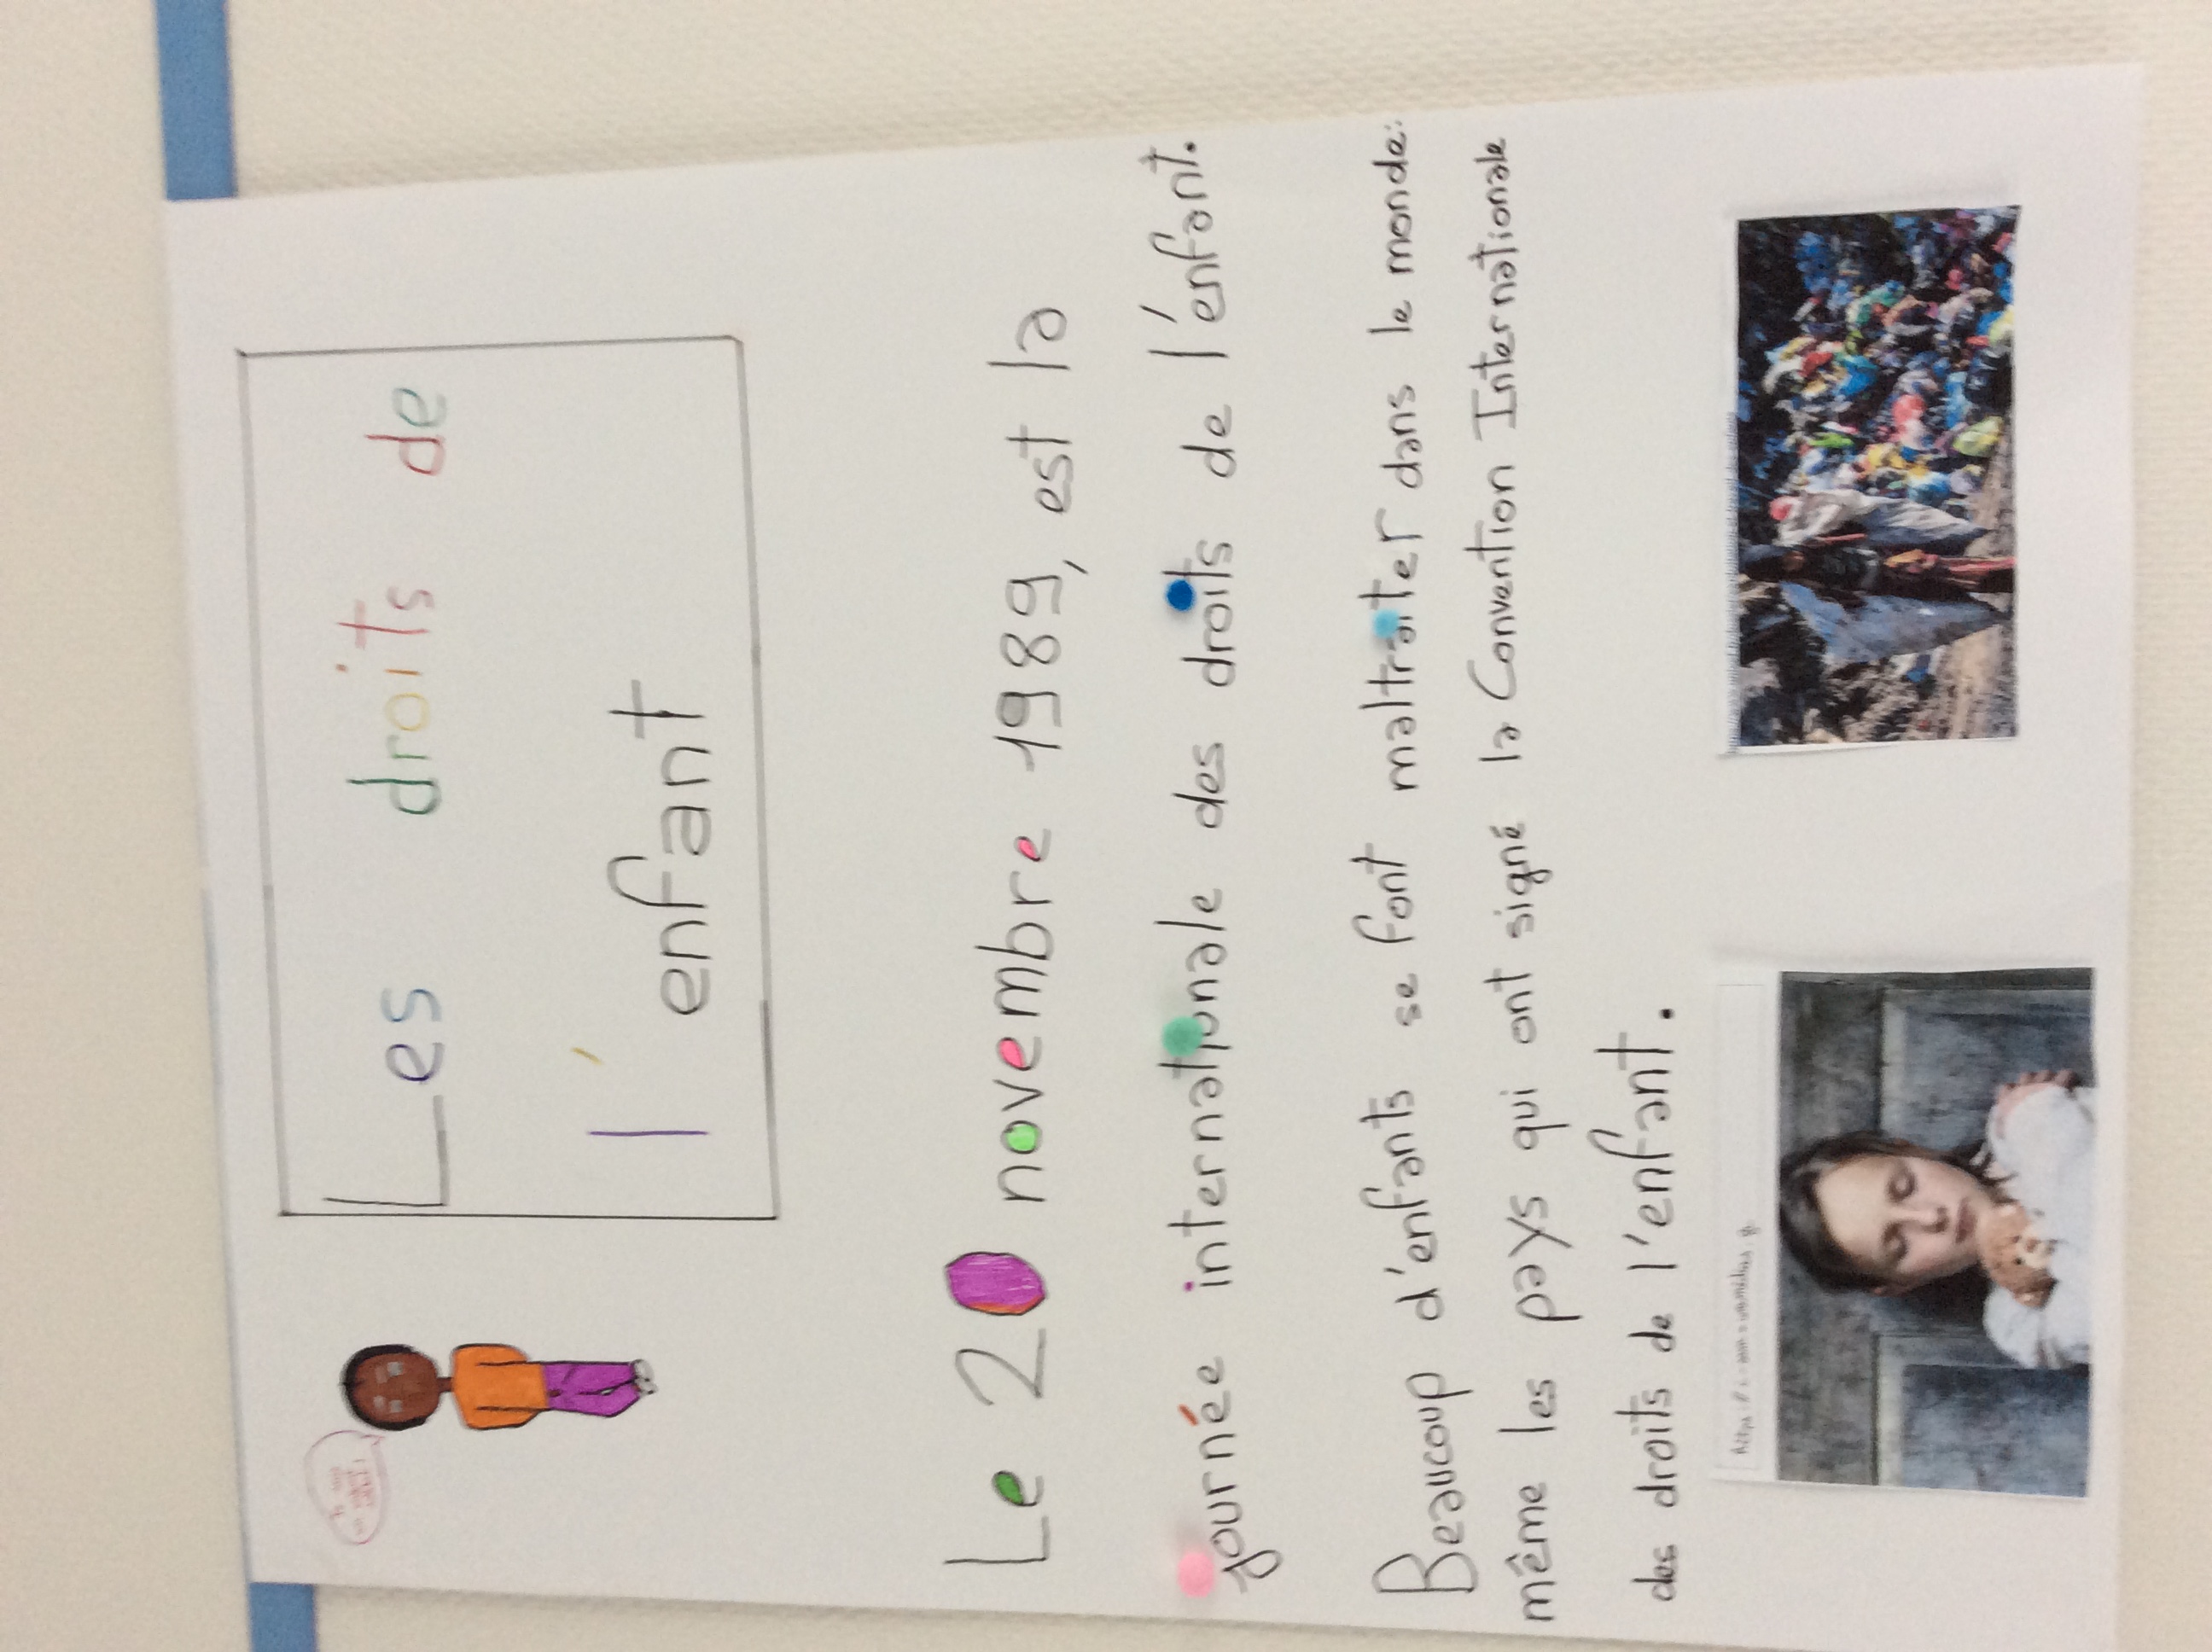 Les droits de
l'enfant
Le 20 novembre 1989, est la
journée internationale des droits de l'enfant.
Beaucoup d'enfants se font maltraiter dans le monde:
même les pays qui ont signé la Convention Internationale
des droits de l'enfant.